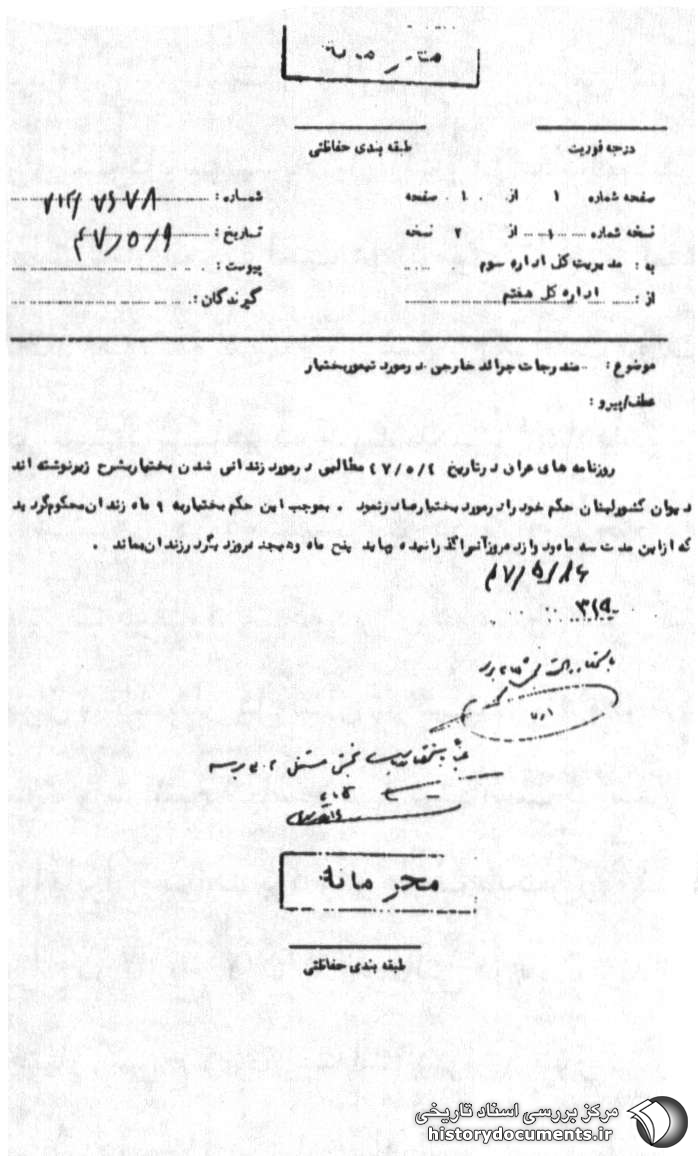 محرمانه
درجه فوریت
طبقه بندی حفاظتی
صفحه شماره ۱ از ۱ صفحه
شماره :
نسخه شماره ۱ از ۲ نسخه
تاریخ : ۴۷/۵/۹
به : مدیریت کل اداره سوم
پیوست :
از : اداره کل هفتم
گیرندگان :
موضوع : مندرجات جرائد خارجی در مورد تیمور بختیار
عطف/پیرو :
روزنامه های عراق در تاریخ ۴۷/۵/۴ مطالبی در مورد زندانی شدن بختیار بشرح زیر نوشته اند
دیوان کشور لبنان حکم خود را در مورد بختیار صادر نمود . بموجب این حکم بختیار به ۹ ماه زندان محکوم گردید
که از این مدت سه ماه و دوازده روز آنرا گذرانیده و باید پنج ماه و هیجده روز دیگر در زندان بماند .
۳۱۹
محرمانه
طبقه بندی حفاظتی
مرکز بررسی اسناد تاریخی
historydocuments.ir